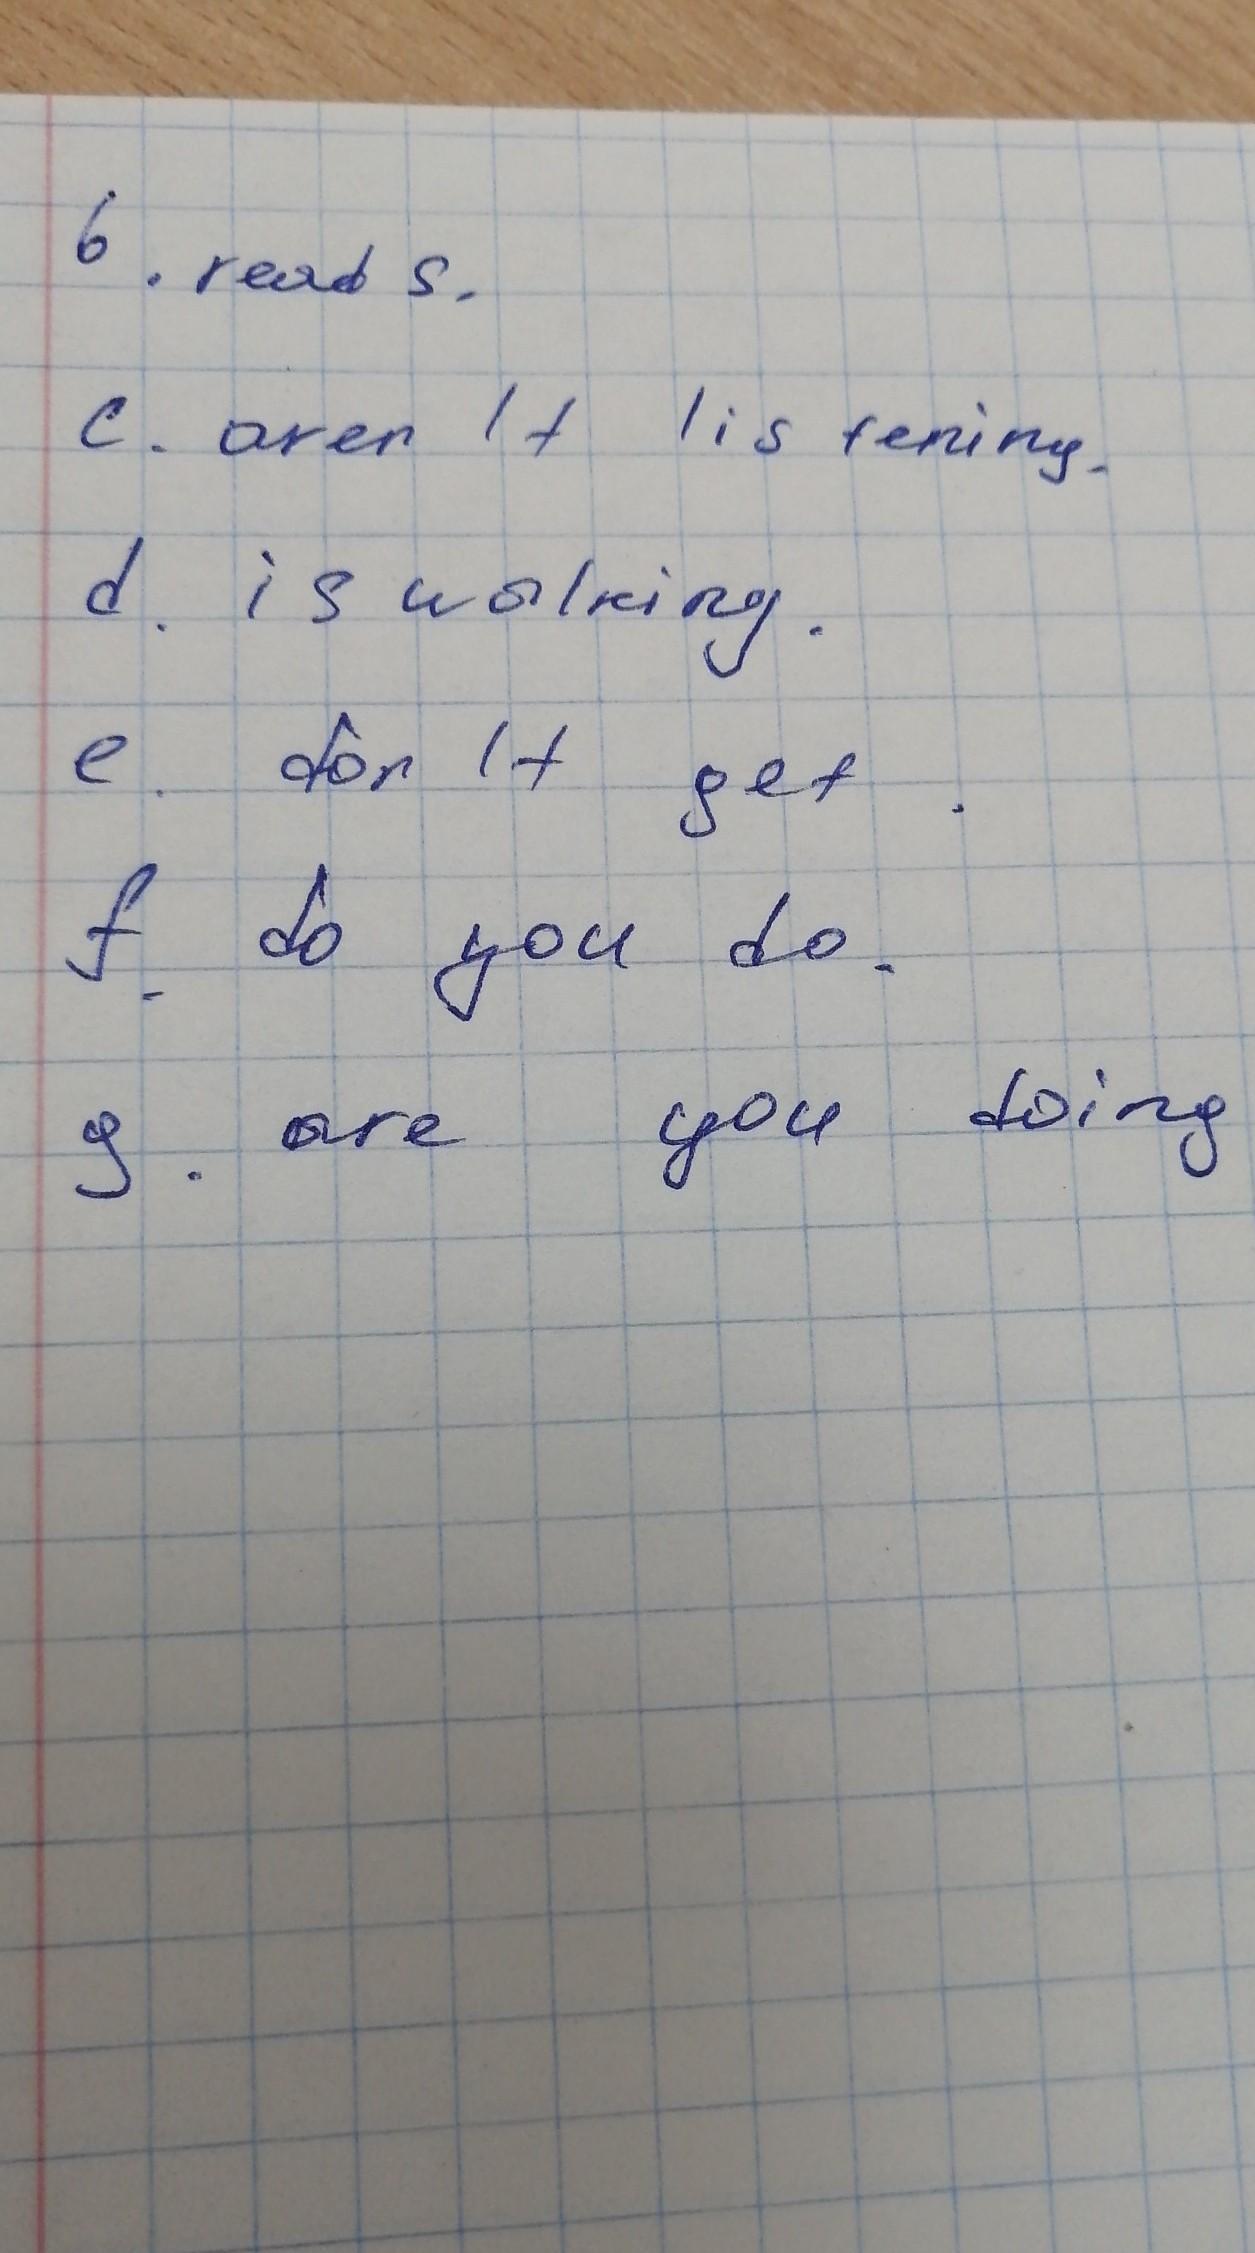 b. reads.
c. aren't listening.
d. is walking.
e. don't get.
f. do you do.
g. are you doing